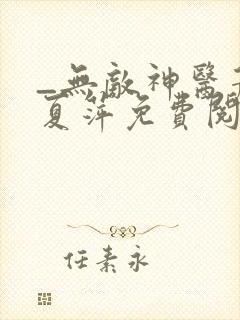 _無敵神醫
夏萍免費閱
任素永